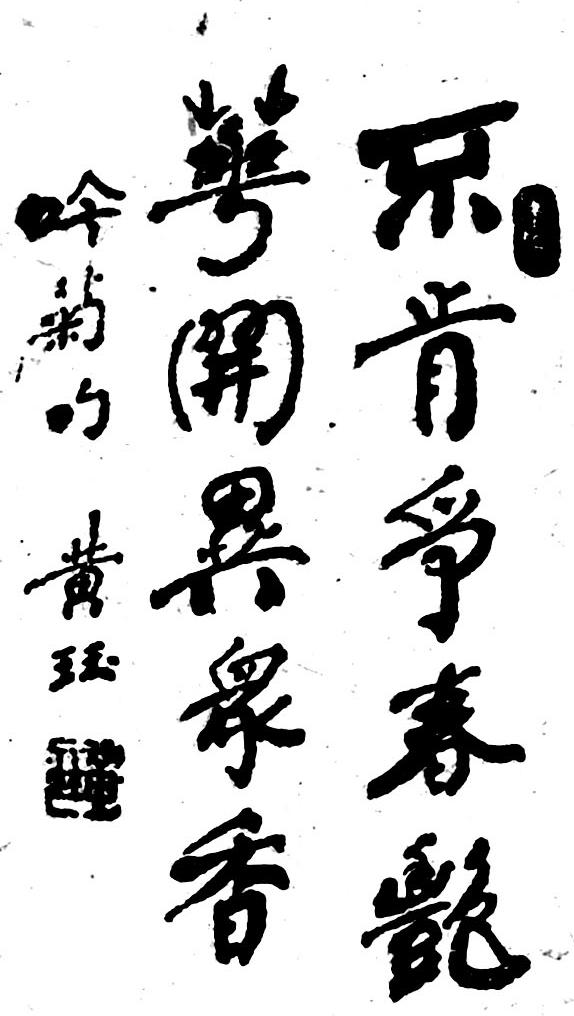 不肯爭春艷
華開異眾香
吟菊句 黄珏